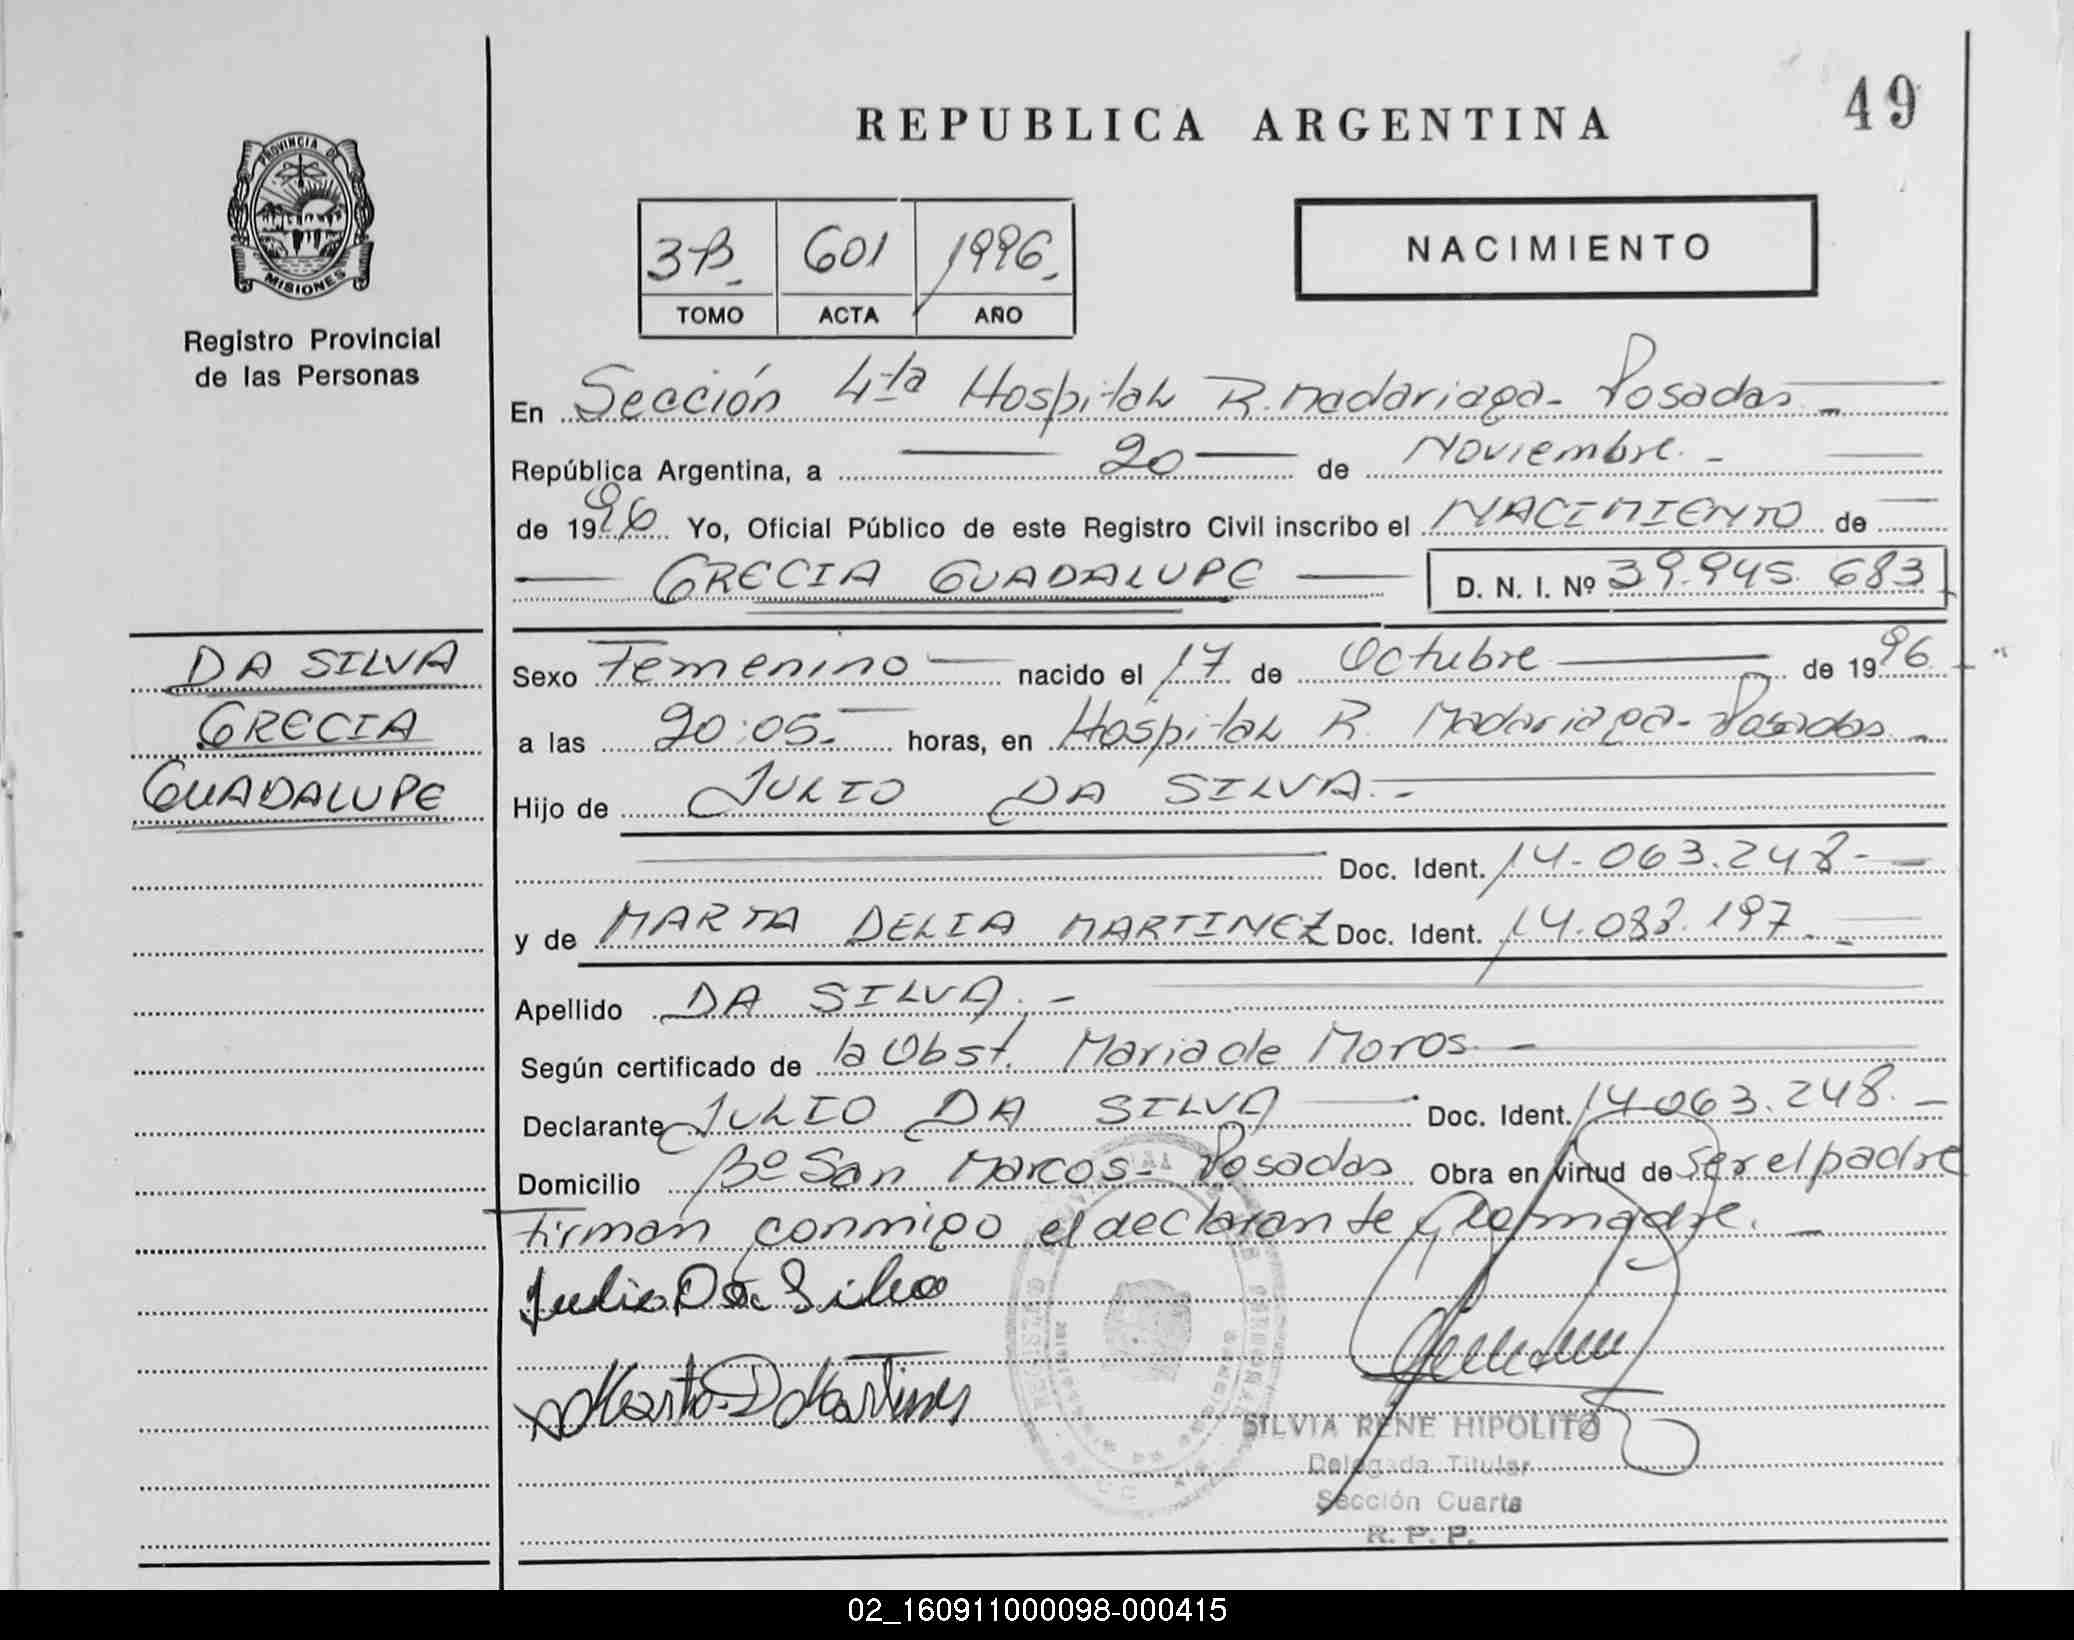 49
REPUBLICA ARGENTINA
PROVINCIA DE
MISIONES
Registro Provincial
de las Personas
3-B. 601 1996.
TOMO ACTA AÑO
NACIMIENTO
En Sección 4ta Hospital R. Madariaga - Posadas -
República Argentina, a 20 de Noviembre. -
de 1996 Yo, Oficial Público de este Registro Civil inscribo el NACIMIENTO de
GRECIA GUADALUPE D. N. I. Nº 39.945.683
DA SILVA
GRECIA
GUADALUPE
Sexo Femenino nacido el 17 de Octubre de 1996
a las 20:05.- horas, en Hospital R. Madariaga - Posadas -
Hijo de JULIO DA SILVA. -
Doc. Ident. 14-063.248-
y de MARTA DELIA MARTINEZ Doc. Ident. 14.083.197. -
Apellido DA SILVA. -
Según certificado de la Obst. Maria de Moros. -
Declarante JULIO DA SILVA Doc. Ident. 14.063.248. -
Domicilio Bº San Marcos - Posadas Obra en virtud de ser el padre
firman conmigo el declarante y la madre. -
Julio Da Silva
Marta D Martinez
SILVIA RENE HIPOLITO
Delegada Titular
Sección Cuarta
R. P. P.
02_160911000098-000415